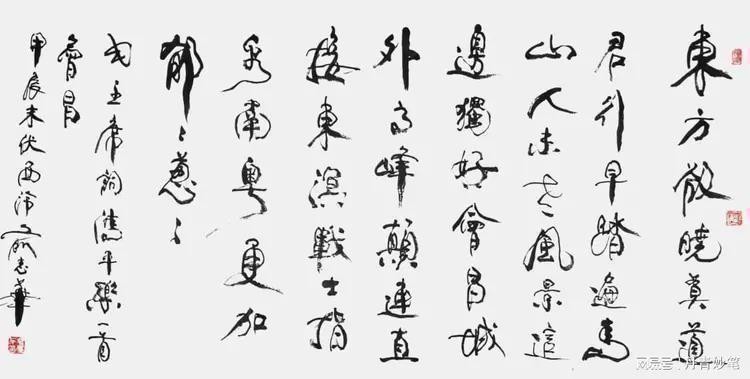 東方欲曉莫道
君行早踏遍青
山人未老風景這
邊獨好會昌城
外高峰顛連直
接東溟戰士指
看南粵更加
郁々蔥々
毛主席詞清平樂一首
會昌
甲辰末伏西沛志華
网易号 丹青妙笔